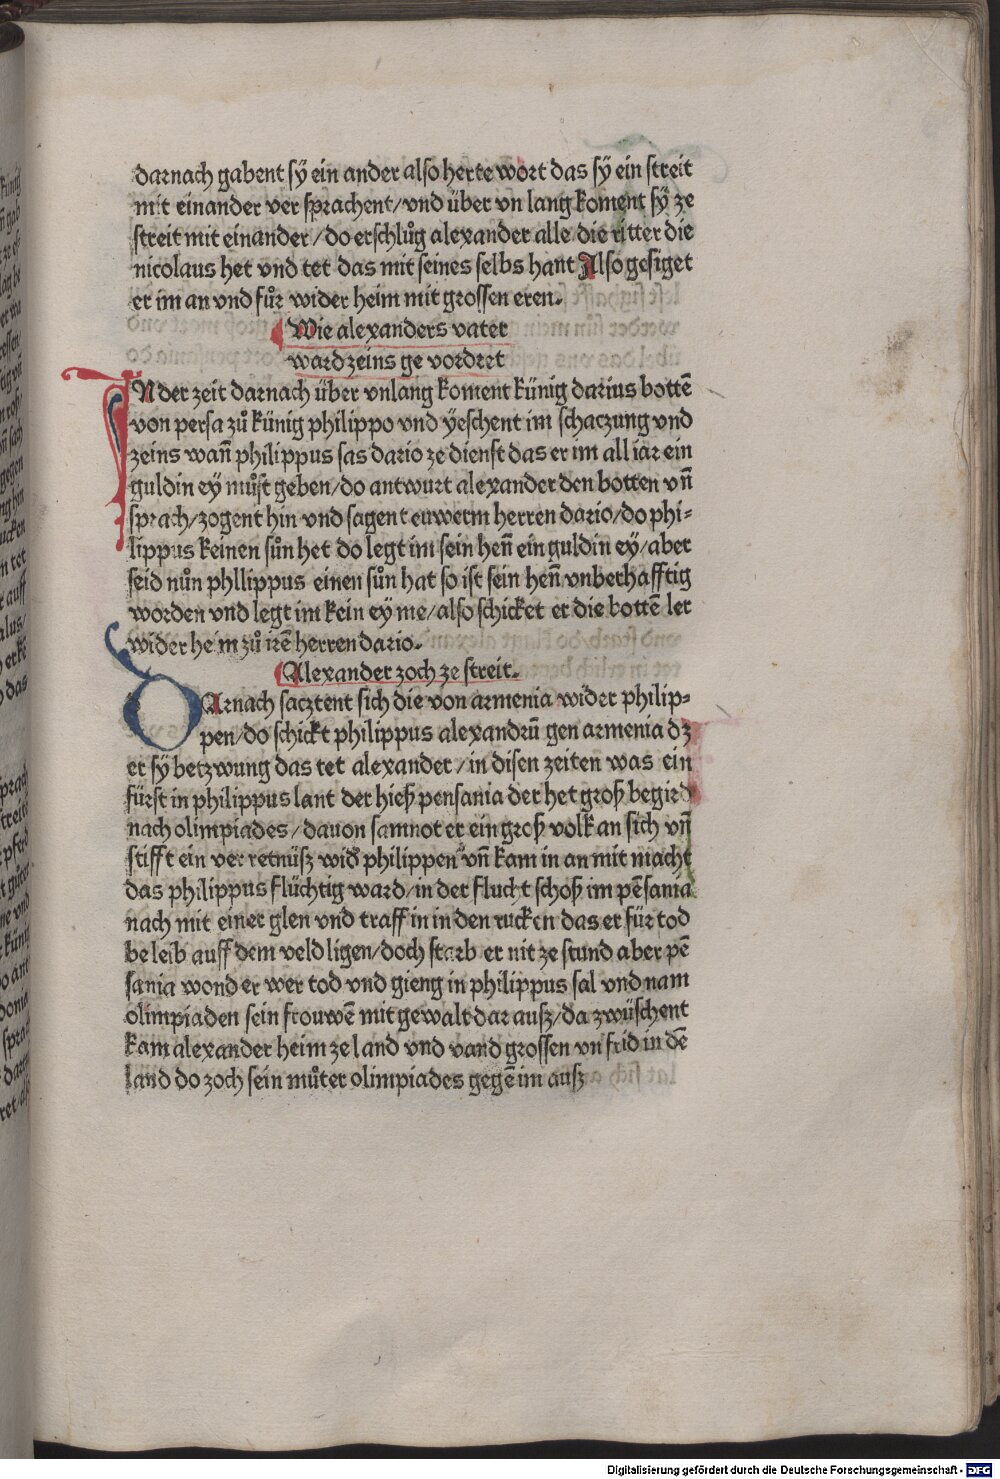 darnach gabent sÿ ein ander also herte wort das sÿ ein streit
mit einander ver sprachent/vnd über vn lang koment sÿ ze
streit mit einander/do erschlůg alexander alle die ritter die
nicolaus het vnd tet das mit seines selbs hant Also gesiget
er im an vnd fůr wider heim mit grossen eren.
Wie alexanders vater
ward zeins ge vordret
IN der zeit darnach über vnlang koment künig darius bottē
von persa zů künig philippo vnd ÿeschent im schaczung vnd
zeins wañ philippus sas dario ze dienst das er im all iar ein
guldin ey můst geben/do antwurt alexander den botten vñ
sprach/zogent hin vnd sagent euwerm herren dario/do phi-
lippus keinen sůn het do legt im sein heñ ein guldin eÿ/aber
seid nůn phllippus einen sůn hat so ist sein heñ vnberhafftig
worden vnd legt im kein eÿ me/also schicket er die bottē ler
wider heim zů irē herren dario.
Alexander zoch ze streit.
DArnach sacztent sich die von armenia wider philip-
pen/do schickt philippus alexandrū gen armenia dz
er sÿ betzwung das tet alexander/in disen zeiten was ein
fürst in philippus lant der hieß pensania der het groß begird
nach olimpiades/dauon samnot er ein groß volk an sich vñ
stifft ein verretnüsz wid᷑ philippen vñ kam in an mit macht
das philippus flüchtig ward/in der flucht schoß im pēsania
nach mit einer glen vnd traff in in den rucken das er für tod
beleib auff dem veld ligen/doch starb er nit ze stund aber pē
sania wond er wer tod vnd gieng in philippus sal vnd nam
olimpiaden sein frouwē mit gewalt dar ausz/da zwüschent
kam alexander heim ze land vnd vand grossen vnfrid in dē
land do zoch sein můter olimpiades gegē im ausz
Digitalisierung gefördert durch die Deutsche Forschungsgemeinschaft - DFG